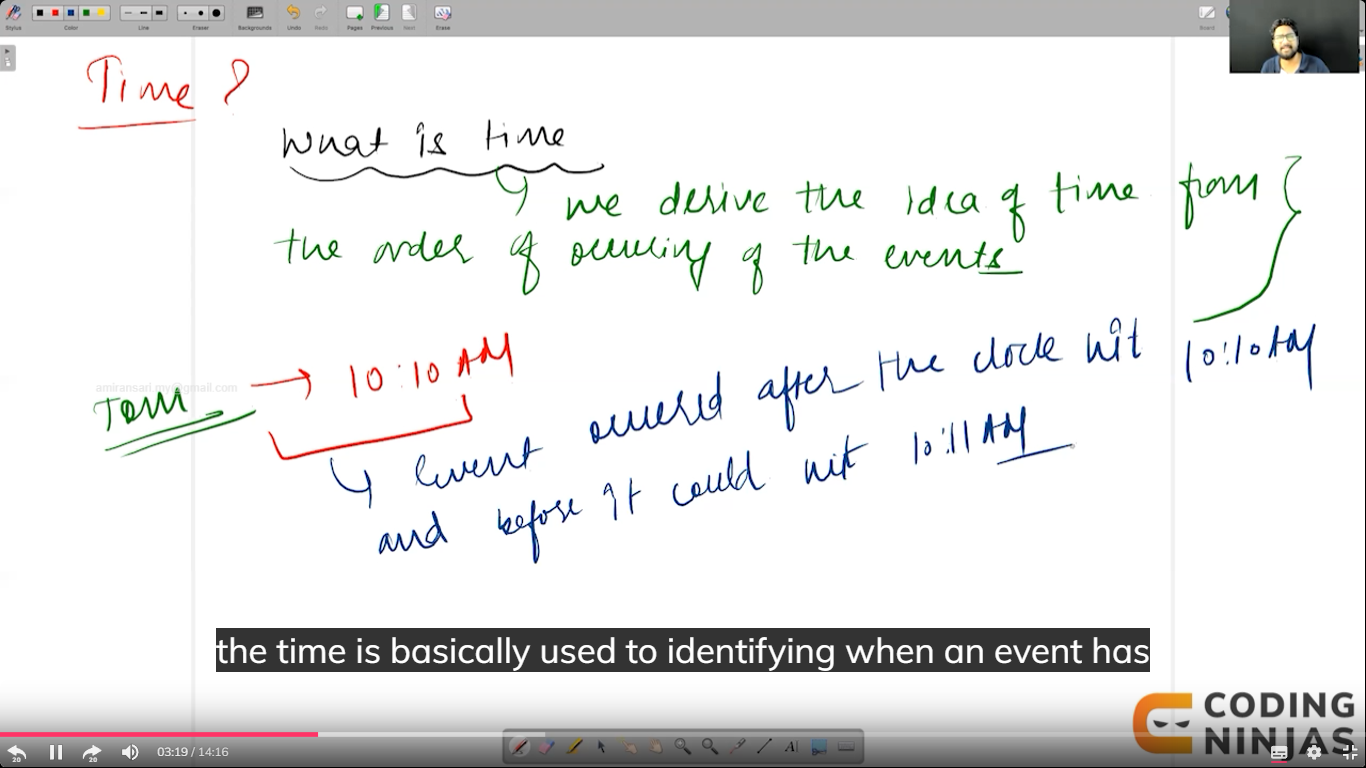 Stylus Color Line Eraser Backgrounds Undo Redo Pages Previous Next Erase Board
Time ?
What is time
we derive the idea of time from
the order of occuring of the events
amiransari.my@gmail.com
Tom → 10:10 AM
Event occured after the clock hit 10:10 AM
and before it could hit 10:11 AM
the time is basically used to identifying when an event has
CODING
NINJAS
20 20 03:19 / 14:16